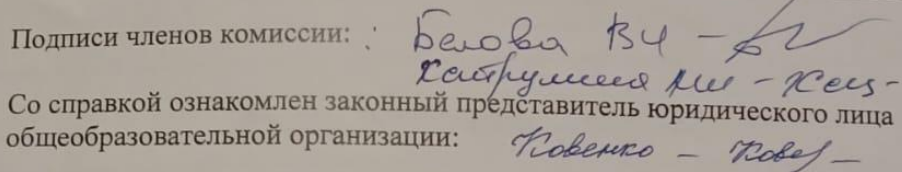 Подписи членов комиссии: Белова ВЧ -
Хайрулина
Со справкой ознакомлен законный представитель юридического лица
общеобразовательной организации: Ковенко -